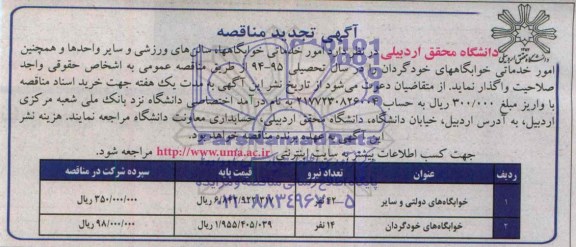 آگهی تجدید مناقصه
دانشگاه محقق اردبیلی در نظر دارد امور خدماتی خوابگاهها، سالن‌های ورزشی و سایر واحدها و همچنین
امور خدماتی خوابگاههای خودگردان را در سال تحصیلی ۹۵-۹۴ از طریق مناقصه عمومی به اشخاص حقوقی واجد
صلاحیت واگذار نماید. از متقاضیان دعوت می‌شود از تاریخ نشر این آگهی به مدت یک هفته جهت خرید اسناد مناقصه
با واریز مبلغ ۳۰۰/۰۰۰ ریال به حساب به نام درآمد اختصاصی دانشگاه نزد بانک ملی شعبه مرکزی
اردبیل، به آدرس اردبیل، خیابان دانشگاه، دانشگاه محقق اردبیلی، حسابداری معاونت دانشگاه مراجعه نمایند. هزینه نشر
این آگهی به عهده برنده مناقصه خواهد بود.
جهت کسب اطلاعات بیشتر به سایت اینترنتی http://www.uma.ac.ir مراجعه شود.
ردیف عنوان تعداد نیرو قیمت پایه سپرده شرکت در مناقصه
۱ خوابگاه‌های دولتی و سایر ۳۵۰/۰۰۰/۰۰۰ ریال
۲ خوابگاه‌های خودگردان ۱۴ نفر ۱/۹۵۵/۴۰۵/۰۳۹ ریال ۹۸/۰۰۰/۰۰۰ ریال
ParsNamadData
۰۲۱-۸۸۳۴۹۶۷۰-۵